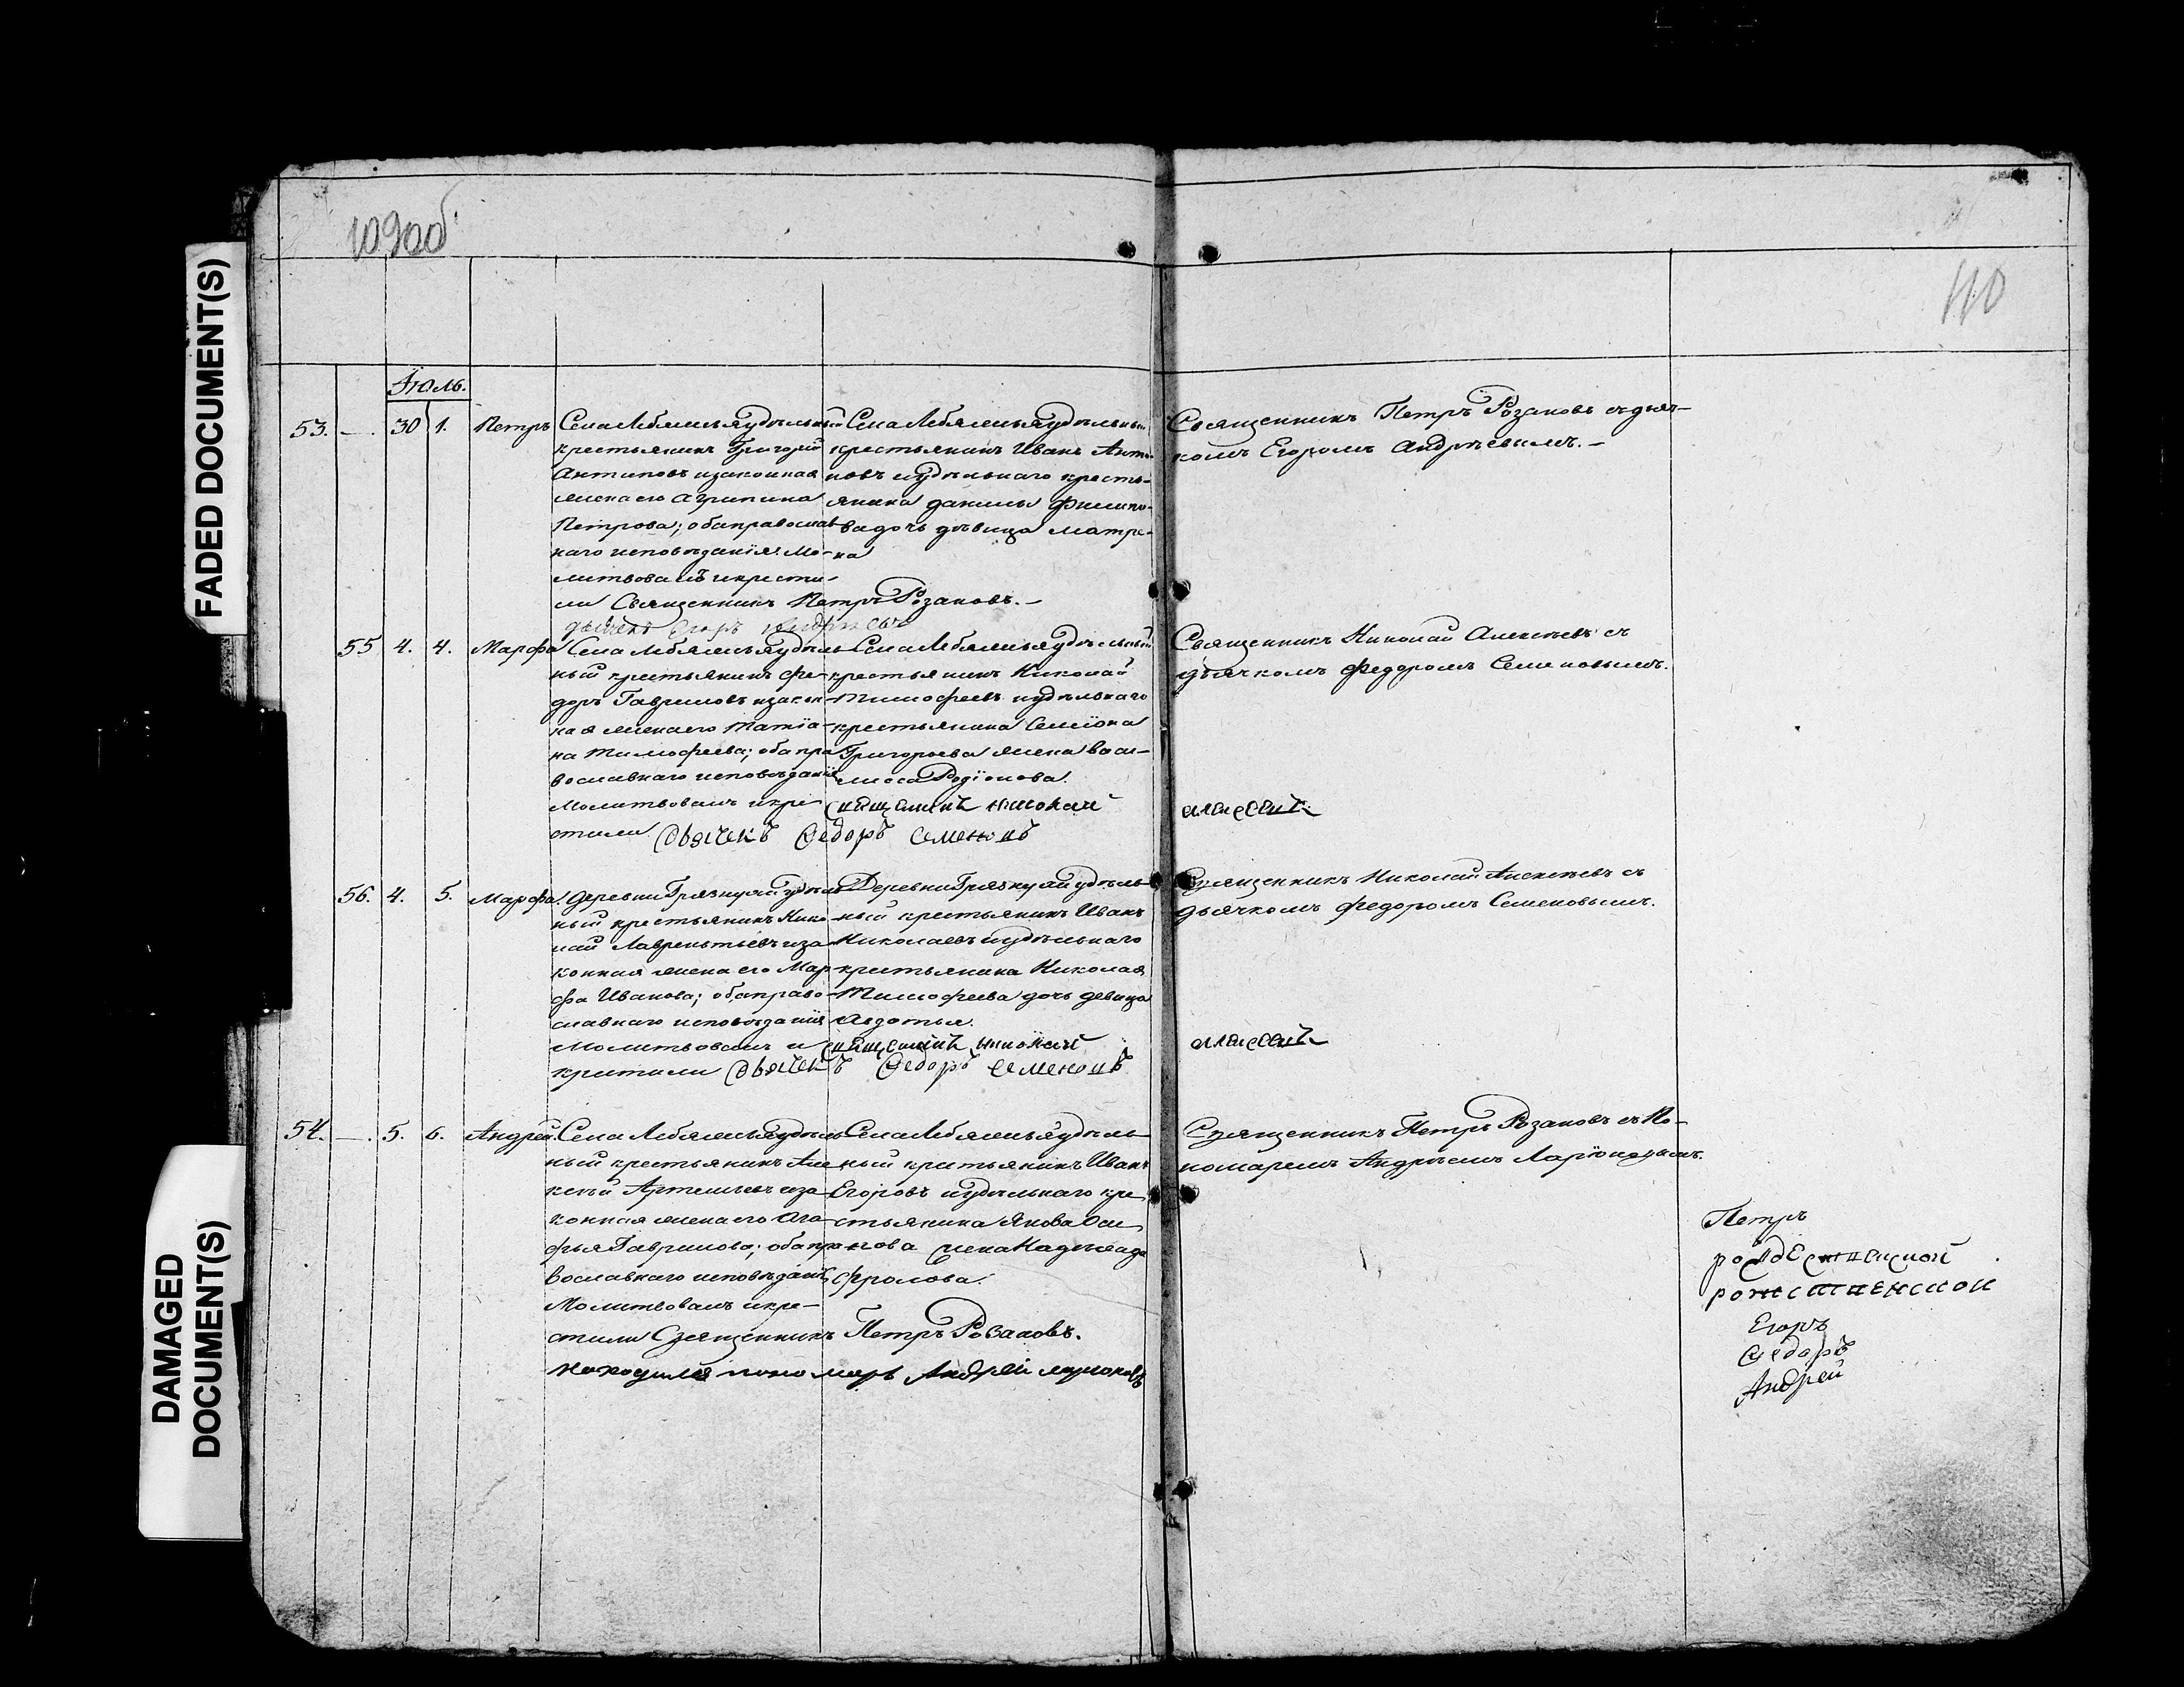 109об
110
FADED DOCUMENT(S)
DAMAGED
DOCUMENT(S)
Іюль.
53. —. 30 1. Петръ
Села Лебяжья удѣльный
крестьянинъ Григорій
Антиповъ и законная
жена его Агрипина
Петрова; оба православ-
наго исповѣданія. Мо-
литвовалъ и крести-
ли Священникъ Петръ Розановъ. —
дьячекъ Егоръ Андреевъ
Села Лебяжья удѣльный
крестьянинъ Иванъ Анти-
повъ и удѣльнаго кресть-
янина Данилы Филипо-
ва дочь дѣвица Матре-
на
Священникъ Петръ Розановъ съ дьяч-
комъ Егоромъ Андрѣевымъ. —
55 4. 4. Марфа
Села Лебяжья удѣль-
ный крестьянинъ Фе-
доръ Гавриловъ и закон-
ная жена его Татіа-
на Тимофеева; оба пра-
вославнаго исповѣданія
Молитвовалъ и кре-
стили
Села Лебяжья удѣльный
крестьянинъ Николай
Тимофеевъ и удѣльнаго
крестьянина Семіона
Григорьева жена Васи-
лиса Родіонова.
священникъ николай алексеевъ
Дьячекъ Федоръ Семеновъ
Священникъ Николай Алексѣевъ съ
дьячкомъ Федоромъ Семеновымъ.
56. 4. 5. Марфа.
Деревни Грязнухи удѣль-
ный крестьянинъ Нико-
лай Лаврентьевъ и за-
конная жена его Мар-
фа Иванова; оба право-
славнаго исповѣданія
Молитвовалъ и
крестили
Деревни Грязнухи удѣль-
ный крестьянинъ Иванъ
Николаевъ и удѣльнаго
крестьянина Николая
Тимофеева дочь девица
Авдотья.
священникъ николай алексеевъ
Дьячекъ Федоръ Семеновъ
Священникъ Николай Алексѣевъ съ
дьячкомъ Федоромъ Семеновымъ.
54. —. 5. 6. Андрей.
Села Лебяжья удѣль-
ный крестьянинъ Але-
ксѣй Артемьевъ и за-
конная жена его Ага-
фья Гаврилова; оба пра-
вославнаго исповѣданія
Молитвовалъ и кре-
стили Священникъ Петръ Розановъ.
находился пономарь Андрей ларионовъ
Села Лебяжья удѣль-
ный крестьянинъ Иванъ
Егоровъ и удѣльнаго кре-
стьянина Якова Оси-
пова жена Надежда
Фролова.
Священникъ Петръ Розановъ съ По-
номаремъ Андрѣемъ Ларіоновымъ.
Петръ
рождественской
рожственской
Егоръ
Федоръ
Андрей